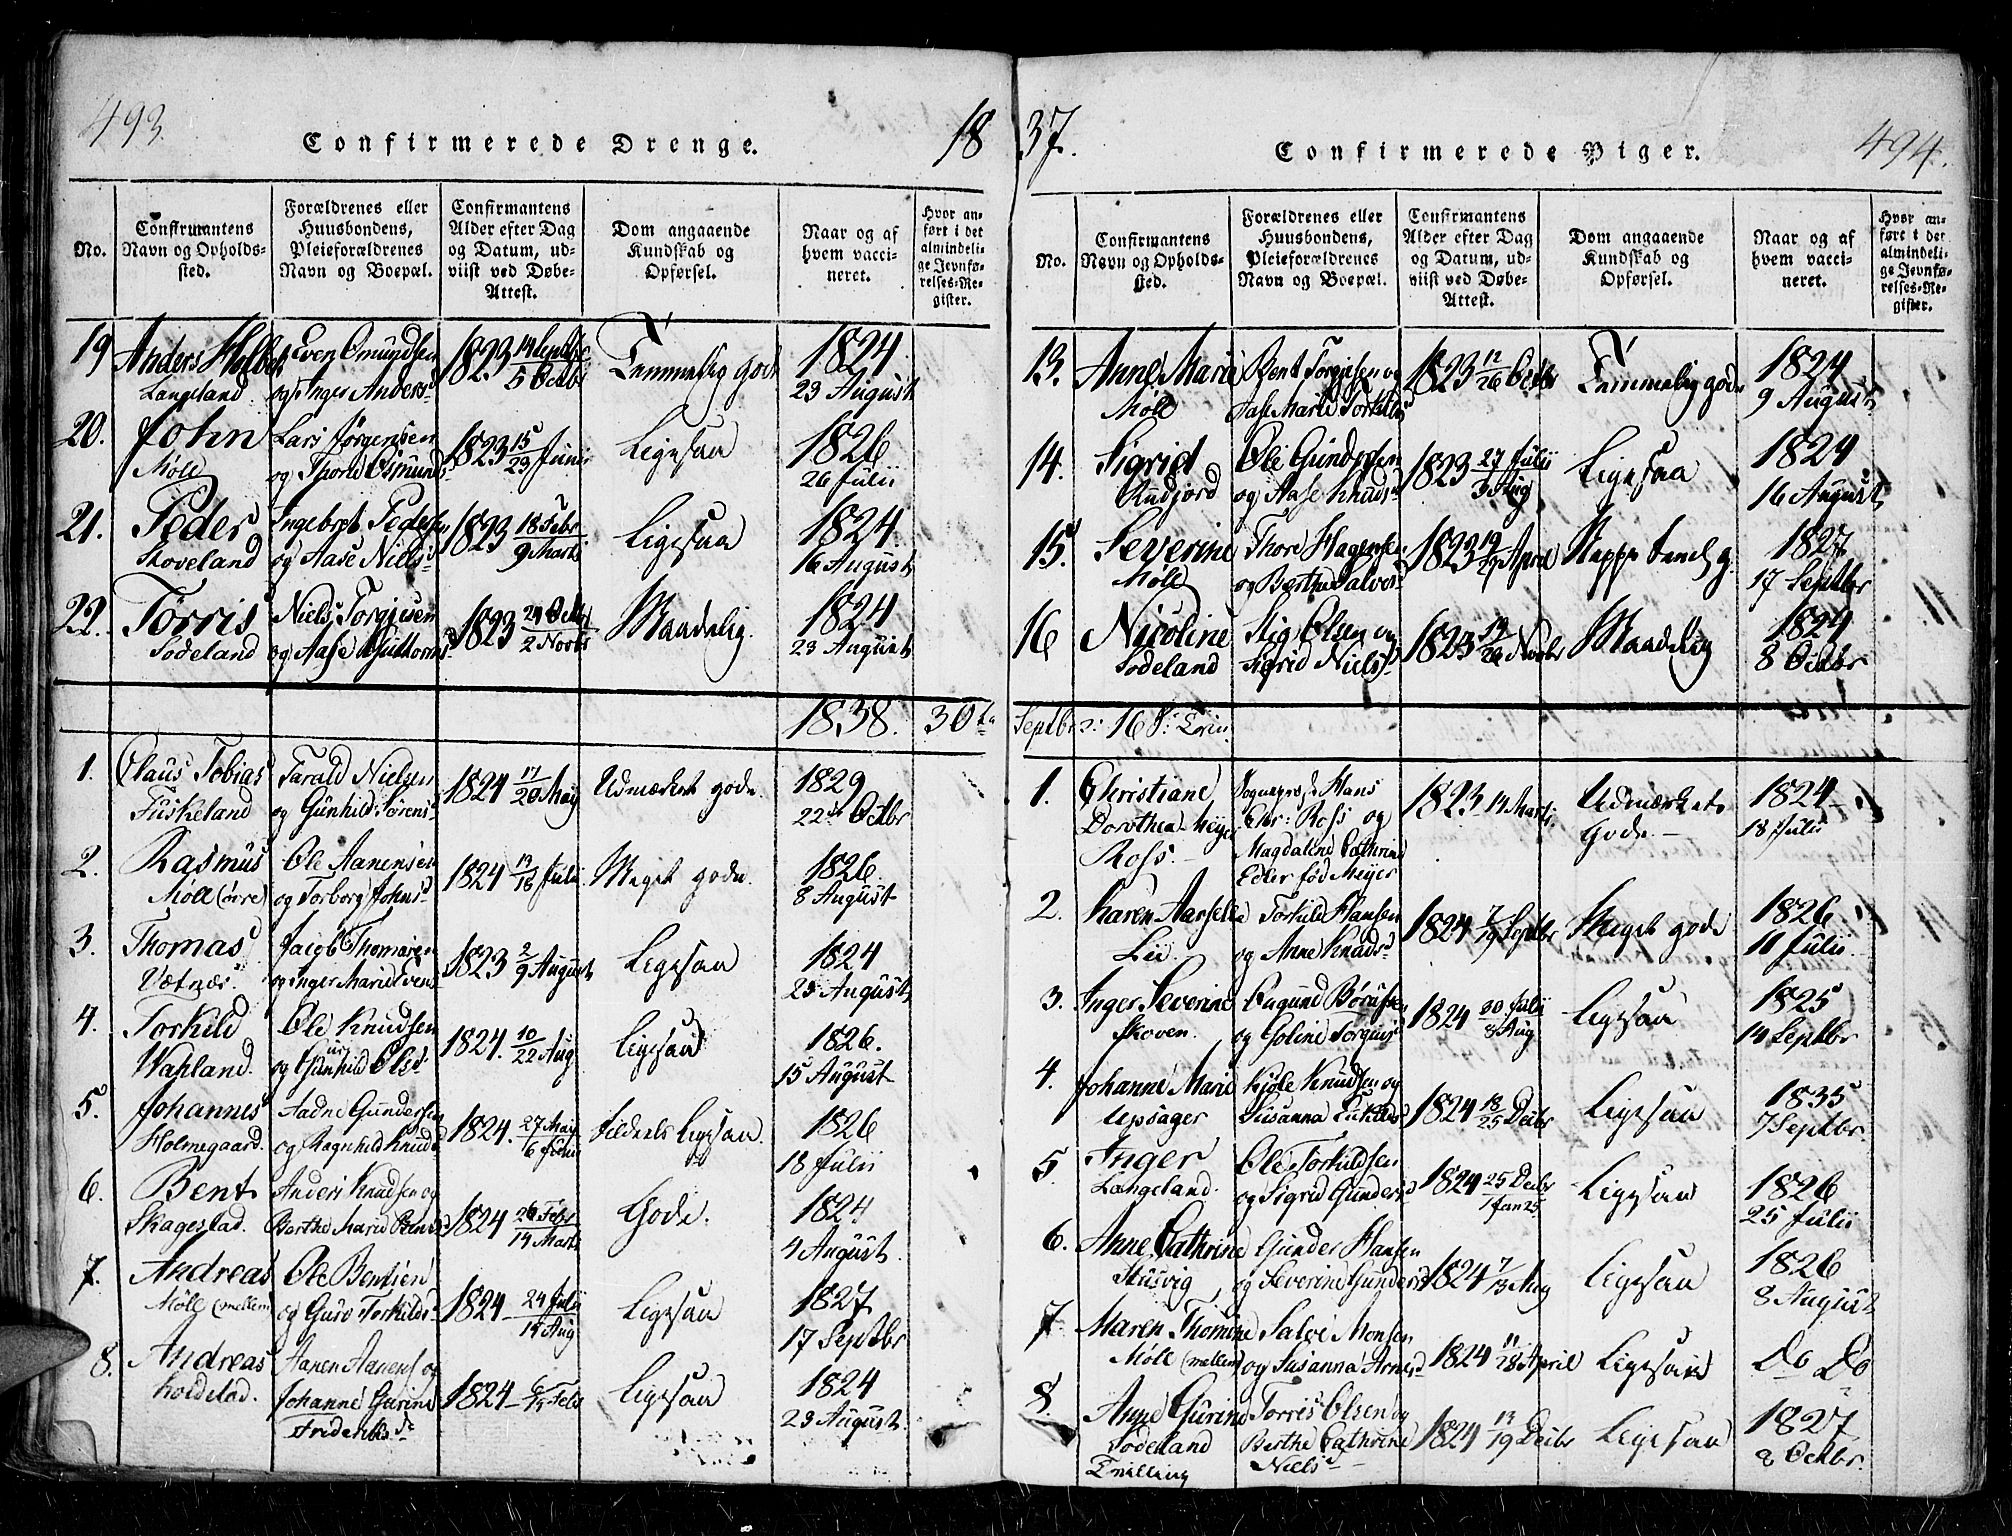 493.
Confirmerede Drenge.
18
No.
Confirmantens Navn og Opholdssted.
Forældrenes eller Huusbondens, Pleieforældrenes Navn og Boepæl.
Confirmantens Alder efter Dag og Datum, udviist ved Døbe-Attest.
Dom angaaende Kundskab og Opførsel.
Naar og af hvem vaccineret.
Hvor anført i det almindelige Jevnførelses-Register.
19 Anders Holbek Even Omundsen 1823 14 Septbr Temmelig gode 1824
Langeland og Inger Anders 5 Octbr 23 August
20. John Lars Jørgensen 1823 15 Junii Ligesaa 1826
Møll og Thore Osmunds 29 26 Julii
21. Peder Ingebret Pedersen 1823 18 Febr Ligesaa 1824
Skoveland og Aase Niels 9 Marts 16 August
22. Torris Niels Torgiusen 1823 24 Octbr Maadelig. 1824
Sødeland og Aase Guttorms 2 Novbr 23 August
1838. 30te
1. Claus Tobias Tarald Nielsen 1824 17/20 May Udmærket gode. 1829
Fuskeland og Gunhild Sørens 22 Octbr
2. Rasmus Ole Aanensen 1824 13/18 Julii Meget gode. 1826
Møll (øvre) og Torborg Johns 8 August
3. Thomas Jacob Thomasen 1823 2/9 August Ligesaa 1824
Vætnæs og Inger Marie Svens 23 August
4. Torkild Ole Knudsen 1824. 10/22 Aug Ligesaa 1826.
Wahland. og Gunhild Ols 15 August
5. Johannes Aadne Gundersen 1824. 27 May Ligesaa. 1826
Holmegaard. og Ragnhild Knuds 6 Junii 18 Julii
6. Bent Anders Knudsen og 1824 26 Febr Gode. 1824
Skagestad. Berthe Marie Bents 14 Marts 4 August
7. Andreas Ole Bentsen 1824 24 Julii Ligesaa 1827
Møll (mellem) og Guro Torkilds 14 Aug 17 Septbr
8. Andreas Aanen Aanens og 1824 Febr Ligesaa 1824
Holdstad. Johanne Gurine 23 August
Frideriks
37.
Confirmerede Piger.
494.
No.
Confirmantens Navn og Opholdssted.
Forældrenes eller Huusbondens, Pleieforældrenes Navn og Boepæl.
Confirmantens Alder efter Dag og Datum, udviist ved Døbe-Attest.
Dom angaaende Kundskab og Opførsel.
Naar og af hvem vaccineret.
Hvor anført i det almindelige Jevnførelses-Register.
13. Anne Marie Bent Torgiusen og 1823 12/26 Octbr Temmelig gode 1824
Møll Aase Marie Torkilds 9 August
14. Sigrid Ole Gundersen 1823 27 Julii Ligesaa 1824
Rudjord og Aase Knuds 3 Aug 16 August
15. Severine Thore Hagensen 1823 19/29 April 1827
Møll og Berthe Salves 17 Septbr
16 Nicoline Stig Olsen og 1823 19/26 Novbr Maadelig 1824
Sødeland Sigrid Niels 8 Octbr
Septbr 16 S:
1. Christiane Sogneprest Hans 1823 14 Marts Udmærkets 1824
Dorothea Meyer Chr: Ross og Gode. 18 Julii
Ross. Magdalene Cathrine
Edler fød Meyer
2. Karen Aanselle Torkild Hansen 1824 7/19 Septbr Meget gode 1826
Lie. og Anne Knuds 11 Julii
3. Inger Severine Aagund Børufsen 1824 30 Julii Ligesaa 1825
Skoven. og Goline Torgius 8 Aug 14 Septbr
4. Johanne Marie Kjøle Knudsen og 1824 18/25 Decbr Ligesaa 1835
Upsager Susanna 7 Septbr.
5 Inger Ole Torkildsen 1824 25 Decbr Ligesaa 1826
Langeland. og Sigrid Gunders 1 Jan 25 25 Julii
6. Anne Cathrine Gunder Hansen 1824 7/13 May Ligesaa 1826
Stusvig og Severine Gunders 8 August
7 Maren Thomine Salve Monsen 1824 11/28 April Ligesaa Do Do
Møll (mellem) og Susanna Arnes
8. Anne Gurine Torris Olsen og 1824 13/19 Decbr Ligesaa 1827
Sødeland Berthe Cathrine 2 Octbr.
Tvilling Niels